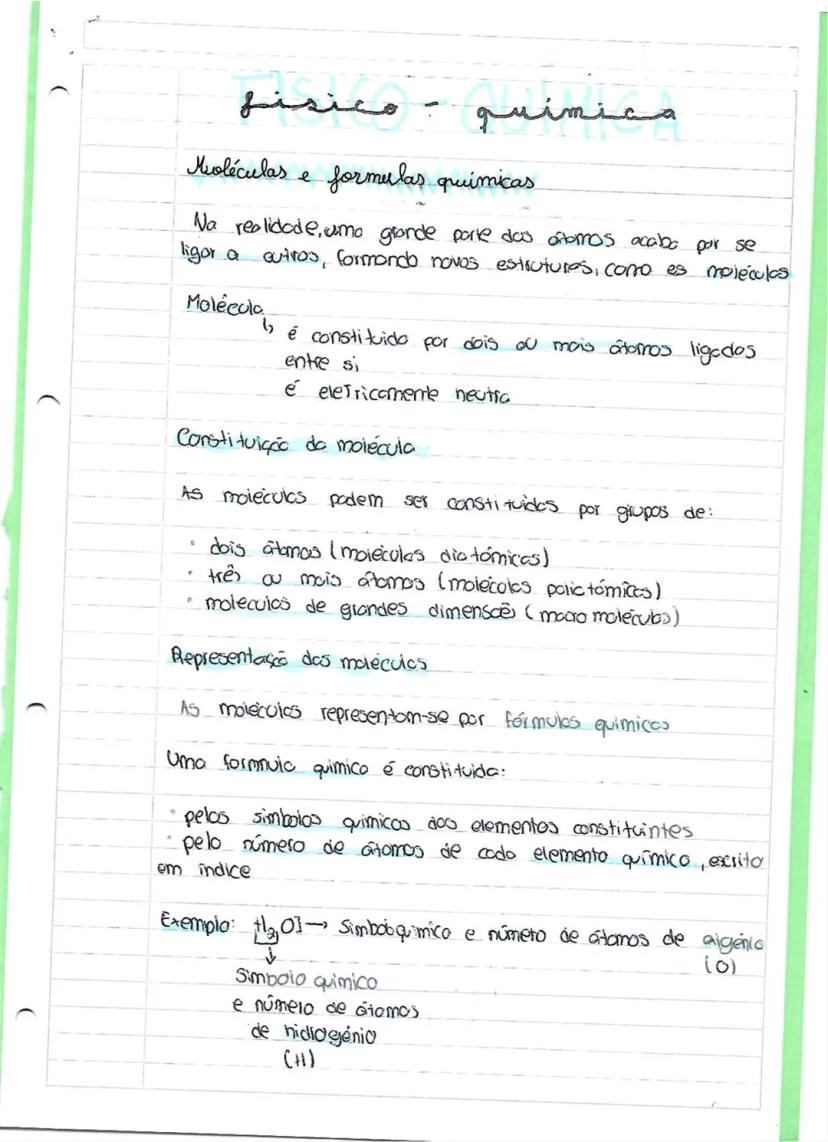 FISICO-QUIMICA
fisico - quimica
Moléculas e formulas quimicas
Na realidade, uma grande parte dos átomos acaba por se
ligar a outros, formando novas estruturas, como as moléculas
Molécula
↳ é constituida por dois ou mais átomos ligados
entre si
é eletricamente neutra
Constituição da molécula
As moléculas podem ser constituidas por grupos de:
• dois átomos (moléculas diatómicas)
• três ou mais átomos (moléculas poliatómicas)
• moléculas de grandes dimensões (macro moléculas)
Representação das moléculas
As moléculas representam-se por fórmulas quimicas
Uma formula quimica é constituida:
• pelos simbolos quimicos dos elementos constituintes
• pelo número de átomos de cada elemento químico, escrito
em índice
Exemplo: H₂O → Simbolo quimico e número de átomos de oxigénio
(O)
↓
Simbolo quimico
e número de átomos
de hidrogénio
(H)